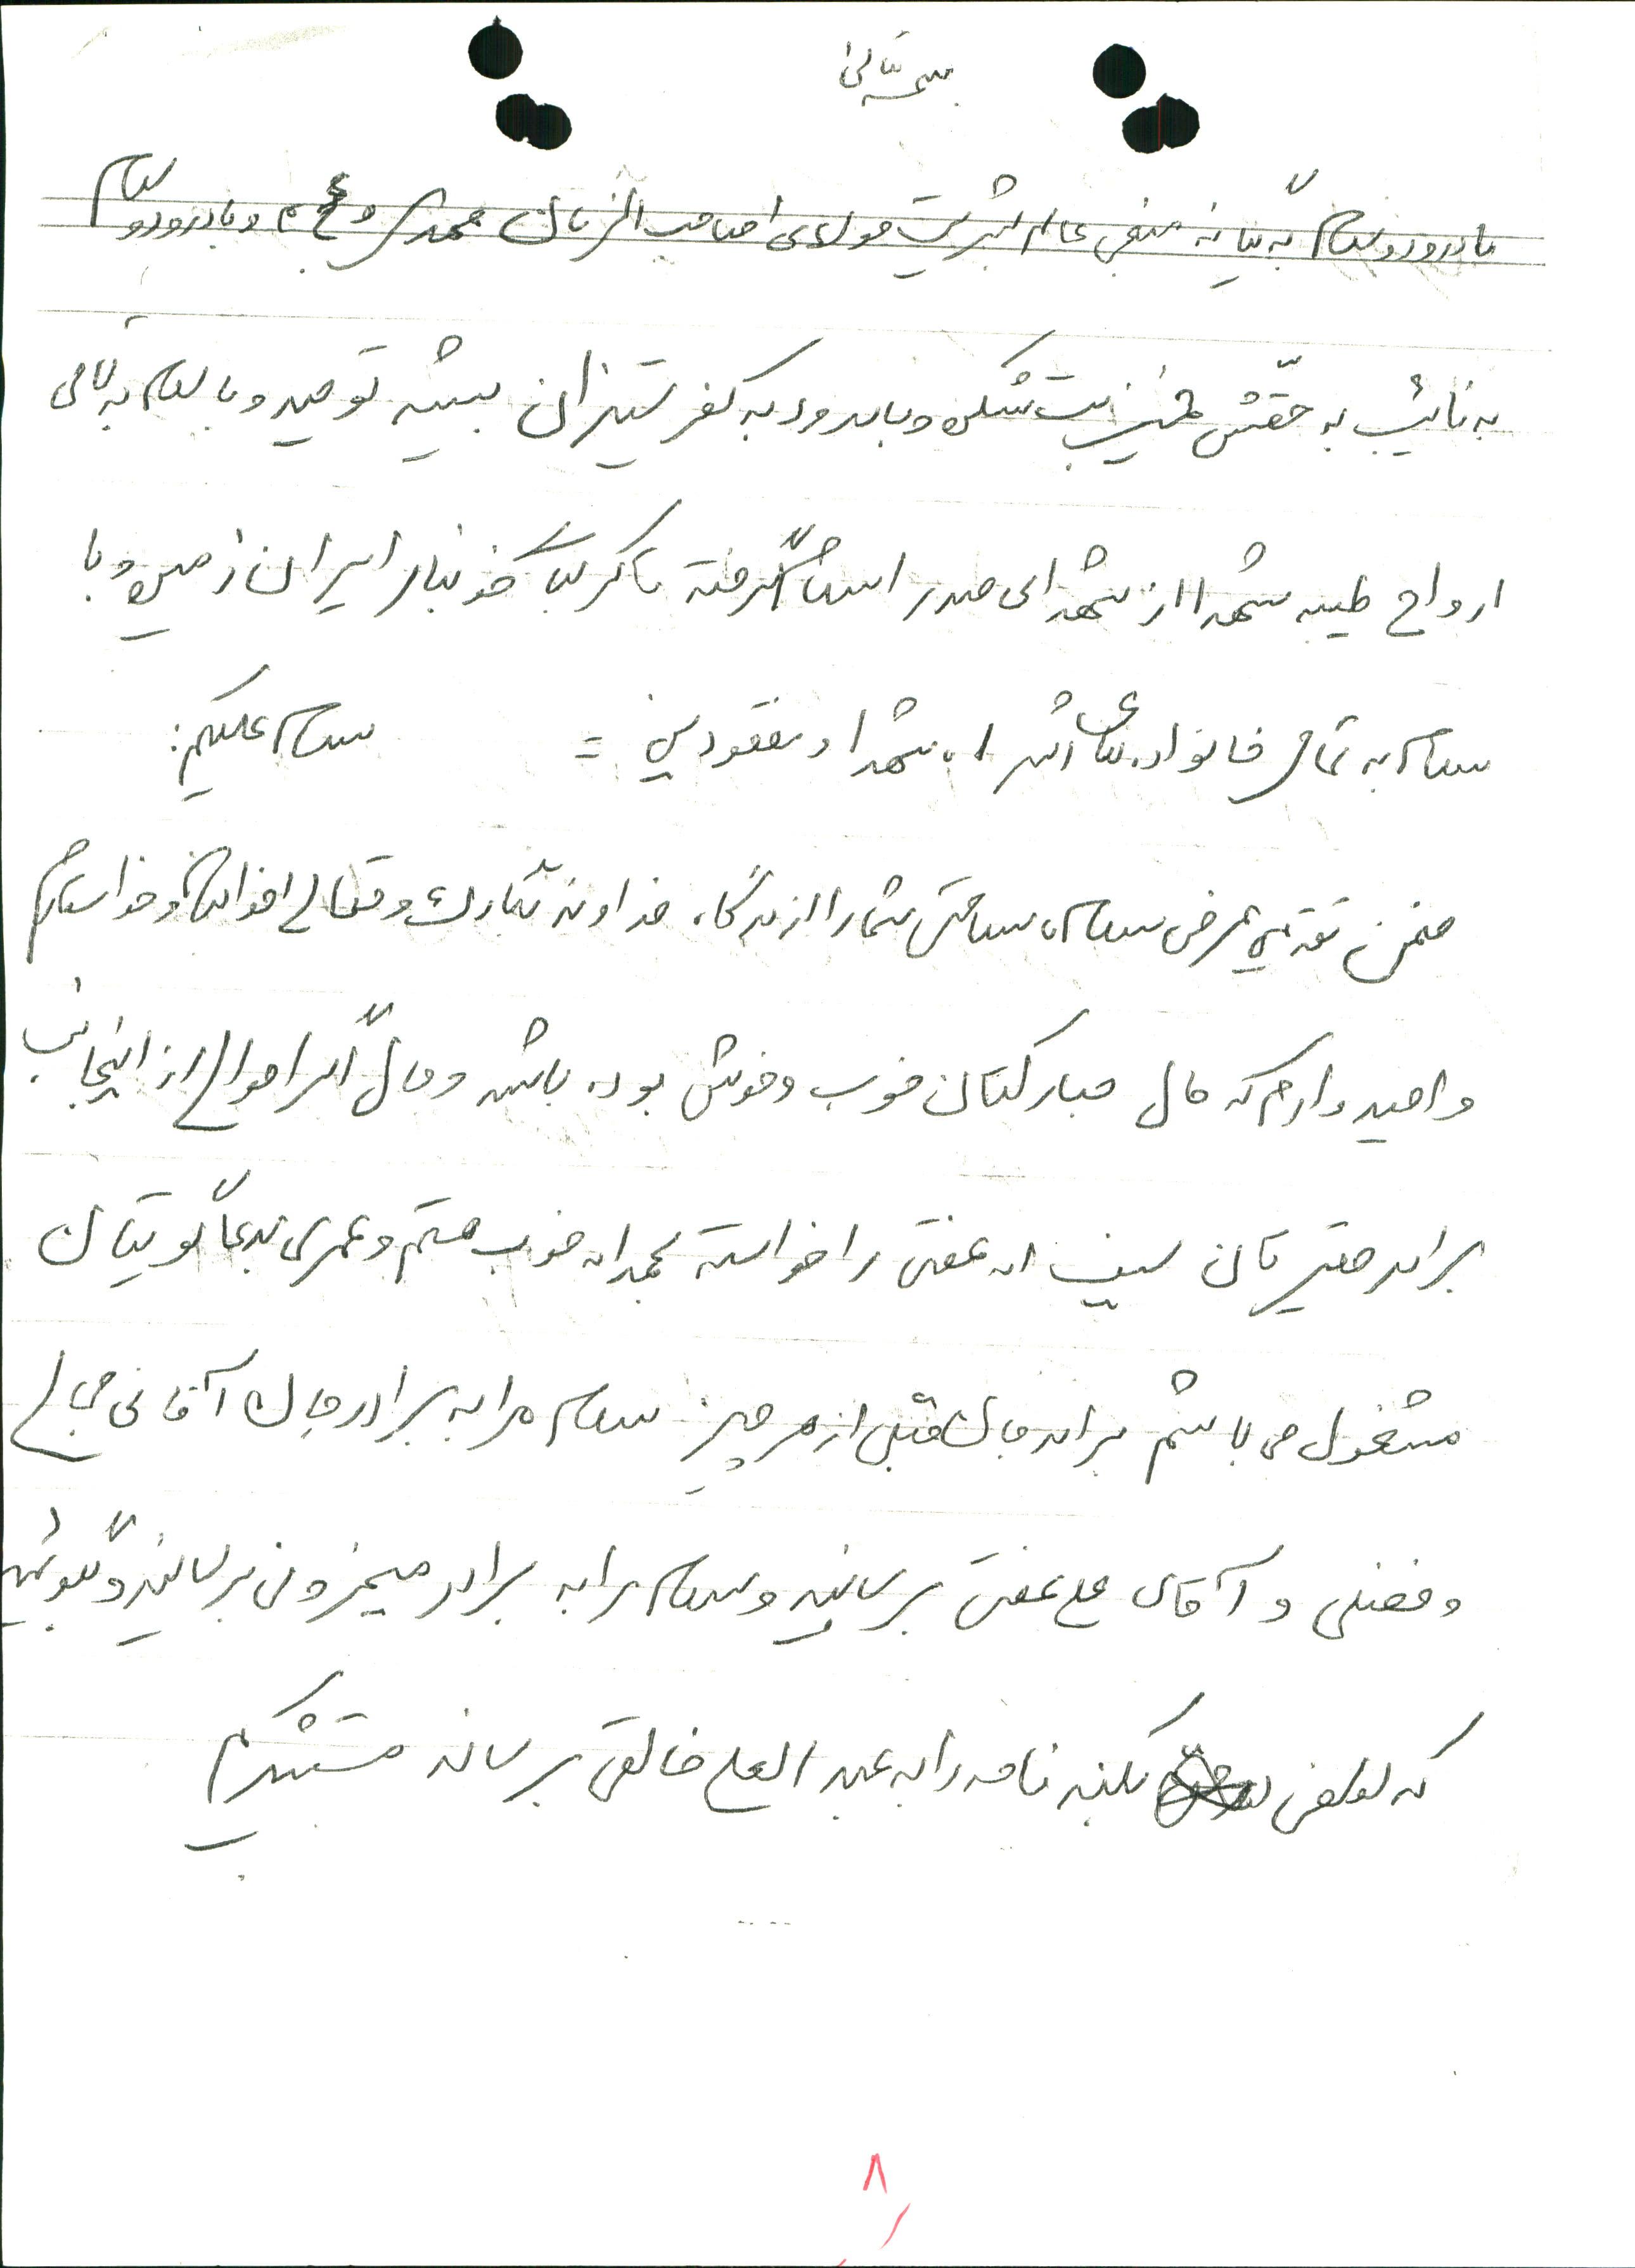 بسمه تعالی
با درود و سلام به یگانه منجی عالم بشریت مولای صاحب الزمان محمد مهدی عج و با درود و سلام
به نائب به حقش خمینی بت شکن و با درود به کفر ستیزان بیشه توحید و با سلام به تمامی
ارواح طیبه شهدا از شهدای صدر اسلام گرفته تا کربلای خونبار ایران زمین و با
سلام به تمامی خانواده های اسرا، شهدا و مفقودین = سلام علیکم:
ضمن تقدیم عرض سلام، سلامتی شما را از درگاه خداوند تبارک و تعالی خواهان و خواستارم
و امیدوارم که حال مبارکتان خوب و خوش بوده باشد و حال اگر احوالی از اینجانب
برادر حقیرتان سیف اله عفتی را خواسته بحمداله خوب هستم و عمری بدعا گوئیتان
مشغول می باشم برادر جان قبل از هر چیز سلام مرا به برادر جان آقائی
و فضلی و آقای علی عفتی برسانید و سلام مرا به برادر برسانید و بگوئید
که لطفی بکند نامه را به عبد العلی خالقی برساند متشکرم
۸